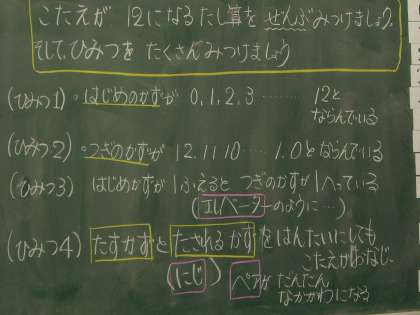 こたえが 12になるたし算をぜんぶみつけましょう。
そして、ひみつをたくさんみつけましょう
(ひみつ1)・はじめのかずが 0,1,2,3……… 12と
ならんでいる
(ひみつ2)・つぎのかずが 12.11.10…… 1.0とならんでいる
(ひみつ3) はじめかずが1ふえると つぎのかずが1へっている
(エレベーターのように…)
(ひみつ4) たすかずとたされるかずをはんたいにしても
こたえがおなじ。
(にじ) ペアが だんだん
なかがわになる